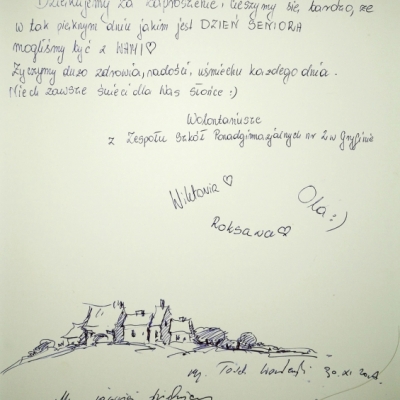 Dziękujemy za zaproszenie i cieszymy się bardzo, że
w tak pięknym dniu jakim jest DZIEŃ SENIORA
mogliśmy być z WAMI♡
Życzymy dużo zdrowia, radości, uśmiechu każdego dnia.
Niech zawsze świeci dla Was słońce :)
Wolontariusze
z Zespołu Szkół Ponadgimnazjalnych nr 2 w Gryfinie
Wiktoria ♡
Ola :)
Roksana ♡
30. XI